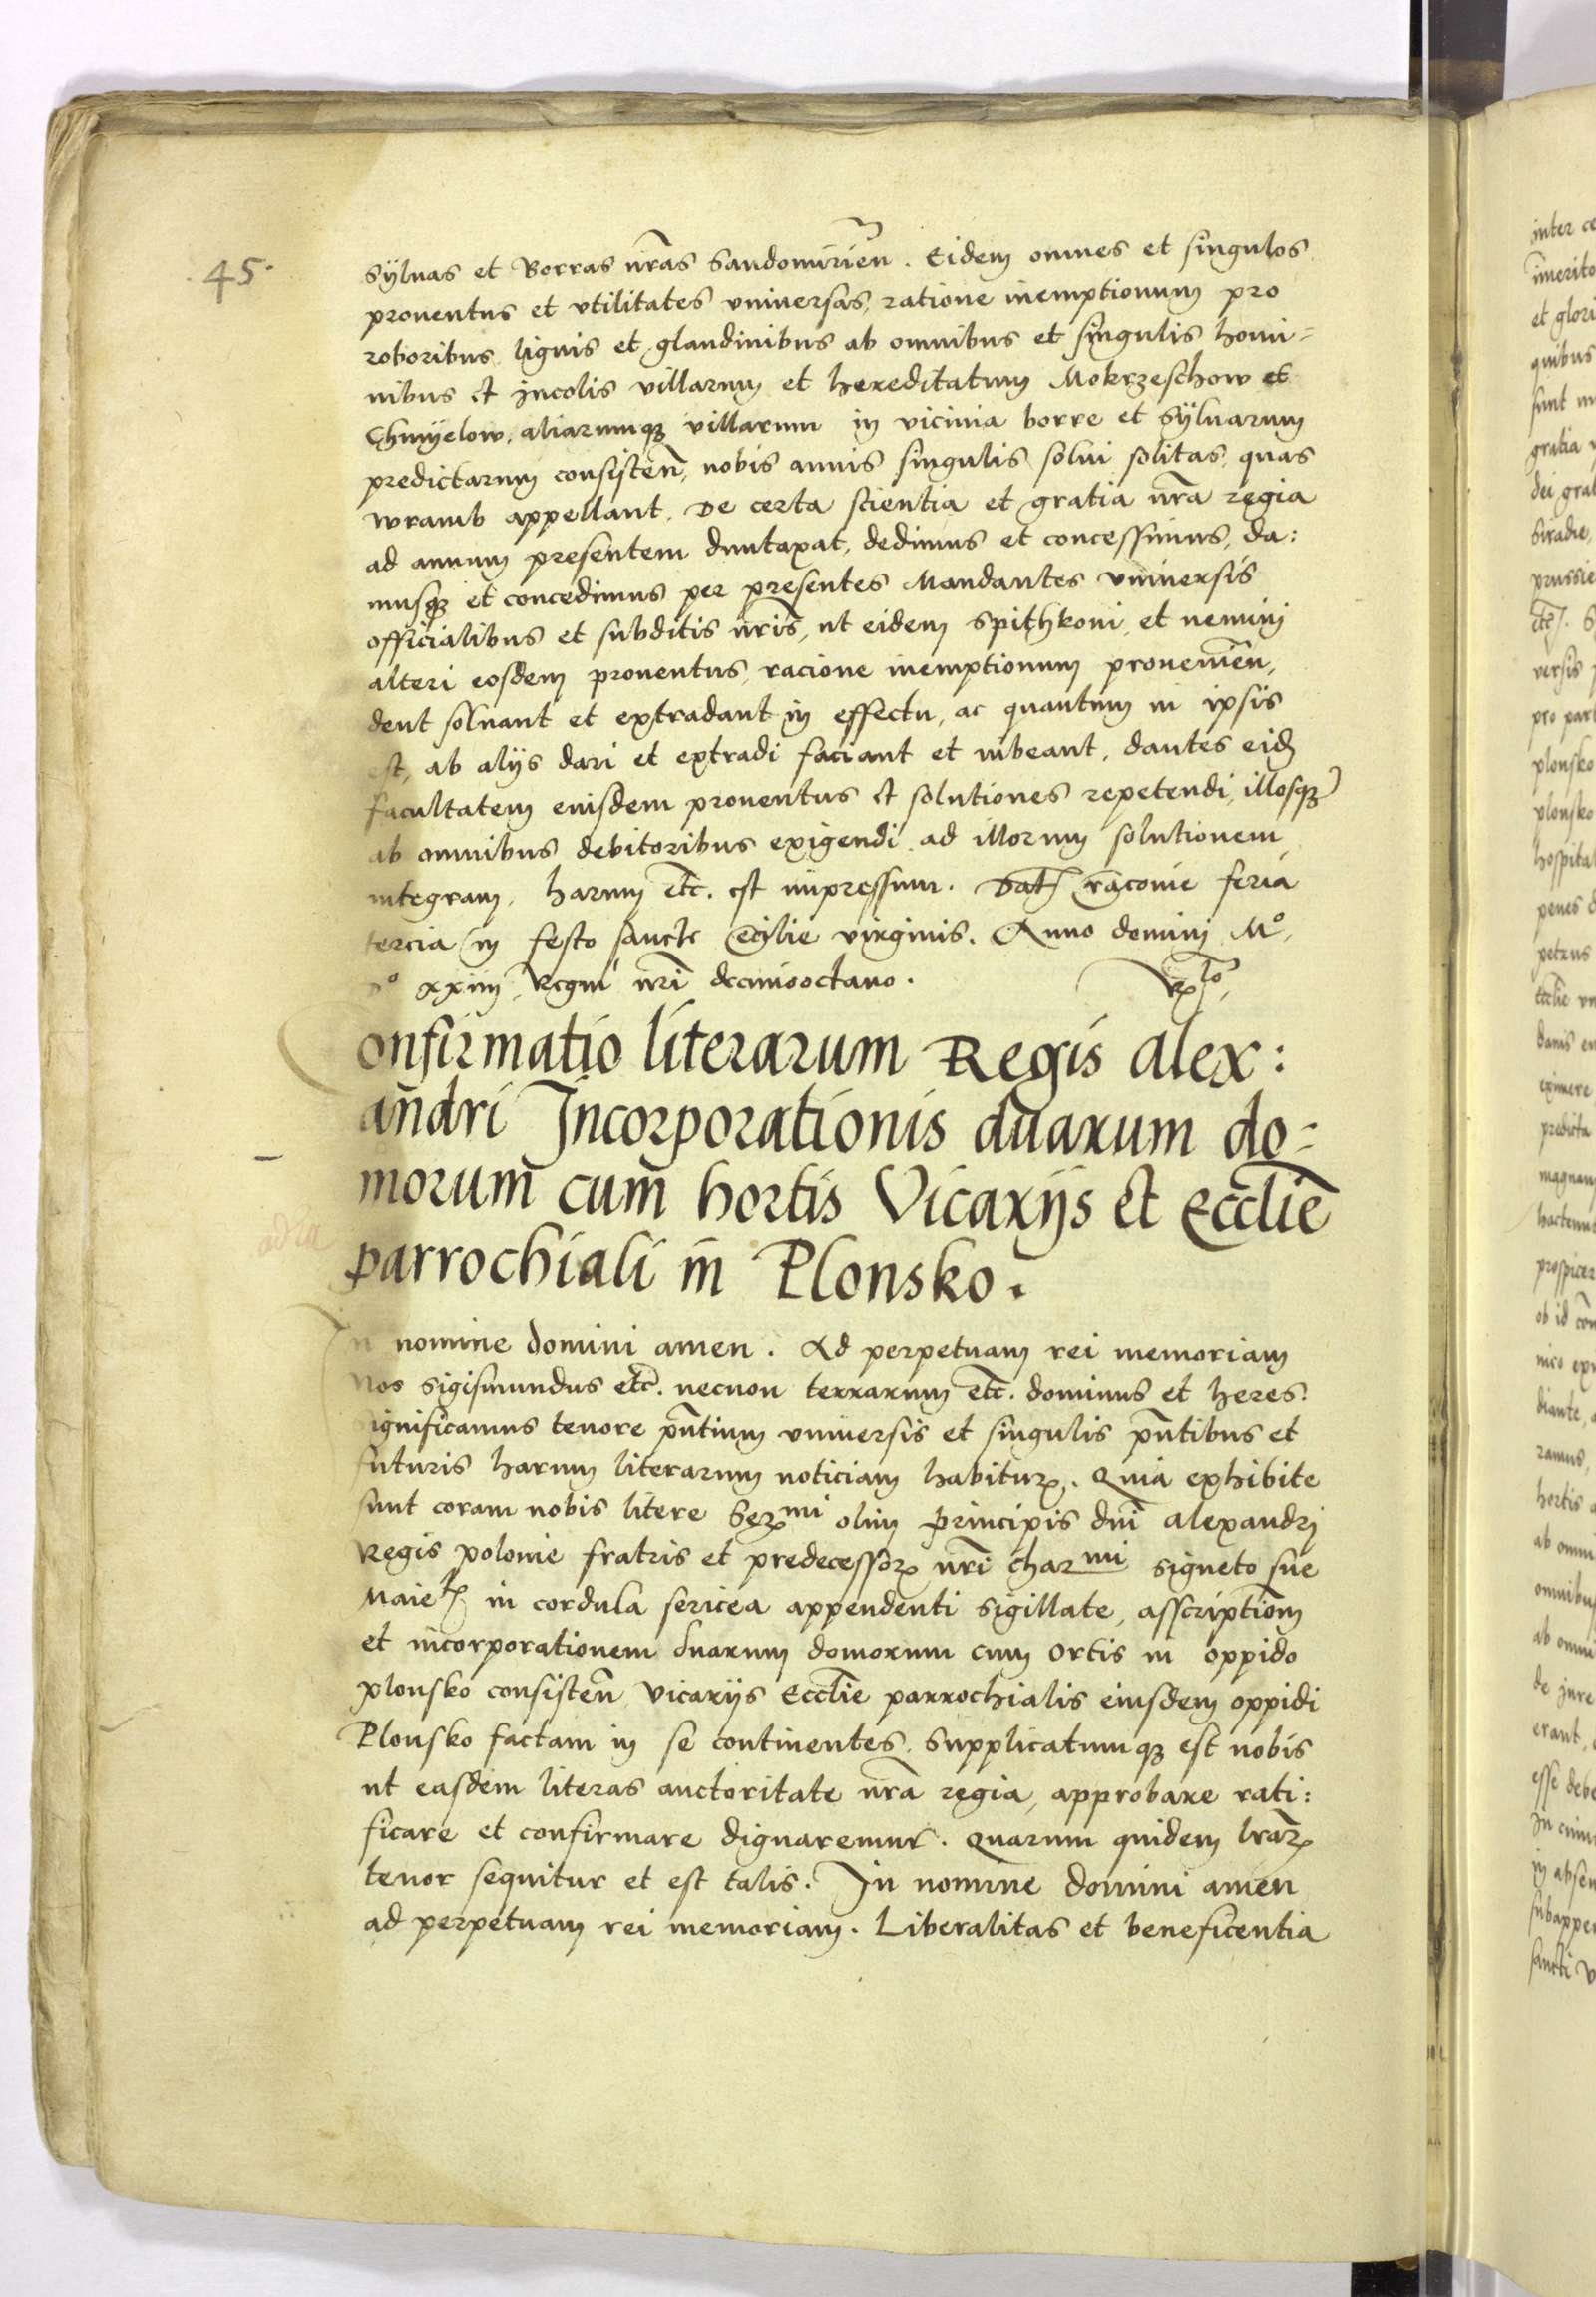 .45.
sÿluas et Borras nr̃as Sandomirien̄. Eidem omnes et singulos
prouentus et vtilitates vniuersas, ratione inemptionum pro
roboribus lignis et glandinibus ab omnibus et singulis homi=
nibus et Jncolis villarum et hereditatum Mokrzeschow et
Chmÿelow, aliarumqꝫ villarum in vicinia borre et sÿluarum
predictarum consisten̄, nobis annis singulis solui solitas, quas
wramb appellant. De certa scientia et gratia nr̃a regia
ad annum presentem duntaxat, dedimus et concessimus, da:
musqꝫ et concedimus per presentes Mandantes vniuersis
officialibus et subditis nr̃is, ut eidem Spithkoni, et nemini
alteri eosdem prouentus, racione inemptionum prouenien̄,
dent soluant et extradant in effectu, ac quantum in ipsis
est, ab alÿs dari et extradi faciant et iubeant, dantes eidẽ
facultatem euisdem prouentus et solutiones repetendi, illosqꝫ
ab omnibus debitoribus exigendi ad illorum solutionem
integram. harum etc̃. est impressum. Dat̃ Cracouie feria
tercia in festo sancte Cecilie virginis. Anno domini Mº.
Dº xxiiij Regni nr̃i decimooctauo.
Confirmatio literarum Regis Alex:
andri Jncorporationis duarum do=
morum cum hortis Vicarijs et Eccl̃ie
parrochiali in Plonsko.
In nomine domini amen. Ad perpetuam rei memoriam
Nos Sigismundus etc̃. necnon terrarum etc̃. dominus et heres.
Significamus tenore pñtium vniuersis et singulis pñtibus et
futuris harum literarum noticiam habiturꝝ. Quia exhibite
sunt coram nobis litere Serᵐⁱ olim principis dñi Alexandri
Regis polonie fratris et predecessorꝝ nr̃i charᵐⁱ signeto sue
Maietꝭ in cordula sericea appendenti sigillate, asscriptiom̃
et incorporationem duarum domorum cum ortis in oppido
plonsko consisten̄ vicarijs Eccl̃ie parrochialis eiusdem oppidi
Plonsko factam in se continentes. Supplicatumqꝫ est nobis
ut easdem literas auctoritate nr̃a regia, approbare rati:
ficare et confirmare dignaremur. Quarum quidem lr̃arꝝ
tenor sequitur et est talis. Jn nomine domini amen
ad perpetuam rei memoriam. Liberalitas et beneficentia